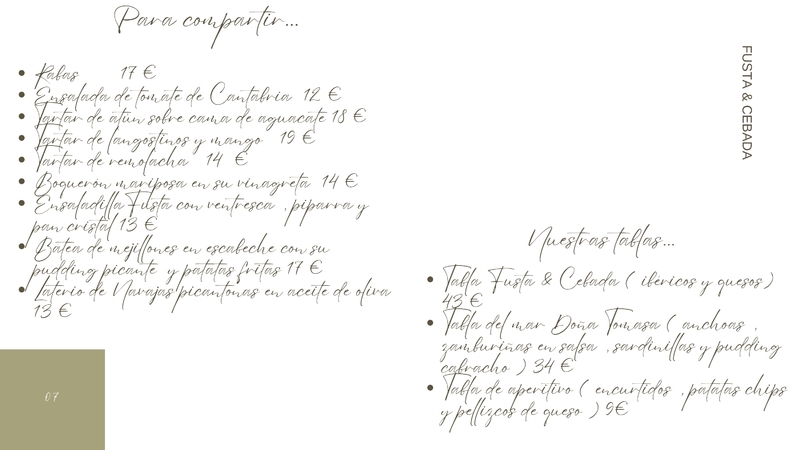 Para compartir...
Rabas 17 €
Ensalada de tomate de Cantabria 12 €
Tartar de atún sobre cama de aguacate 18 €
Tartar de langostinos y mango 19 €
Tartar de remolacha 14 €
Boqueron mariposa en su vinagreta 14 €
Ensaladilla Fusta con ventresca , piparra y
pan cristal 13 €
Batea de mejillones en escabeche con su
pudding picante y patatas fritas 17 €
Laterio de Navajas picantonas en aceite de oliva
13 €
07
FUSTA & CEBADA
Nuestras tablas...
Tabla Fusta & Cebada ( ibéricos y quesos )
43 €
Tabla del mar Doña Tomasa ( anchoas ,
zamburiñas en salsa , sardinillas y pudding
cabracho ) 34 €
Tabla de aperitivo ( encurtidos , patatas chips
y pellizcos de queso ) 9€